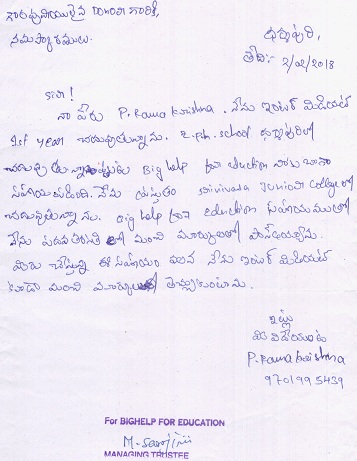 గౌరవనీయులైన Donor గారికి,
నమస్కారములు.
ధర్మపురి,
తేది:- 2/02/2013
sir!
నా పేరు P. Rama krishna. నేను ఇంటర్ మీడియట్
1st year చదువుతున్నాను. Z.p.h. school ధర్మపురిలో
చదువు తున్నప్పుడు Big help for eduction వారు బాగా
సహాయపడింది. నేను ప్రస్తుతం srinivasa Junior College లో
చదువుతున్నాను. Big help for eduction సహాయముతో
నేను పదవతరగతి లో మంచి మార్కులతో పాసయ్యాను.
మీరు చేస్తున్న ఈ సహాయం వలన నేను ఇంటర్ మీడియట్
కూడా మంచి మార్కులు తెచ్చుకుంటాను.
ఇట్లు
మీ విదేయుడు
P. Rama krishna
9701995439
For BIGHELP FOR EDUCATION
MANAGING TRUSTEE